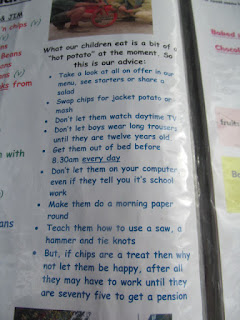 & JSM
'n chips (v)
(v)
Beans
ans
ns (v)
ks from
e with
)
ans
What our children eat is a bit of a
"hot potato" at the moment. So
this is our advice:
• Take a look at all on offer in our
menu, see starters or share a
salad
• Swap chips for jacket potato or
mash
• Don't let them watch daytime TV
• Don't let boys wear long trousers
until they are twelve years old
• Get them out of bed before
8.30am every day
• Don't let them on your computer
even if they tell you it's school
work
• Make them do a morning paper
round
• Teach them how to use a saw, a
hammer and tie knots
• But, if chips are a treat then why
not let them be happy, after all
they may have to work until they
are seventy five to get a pension